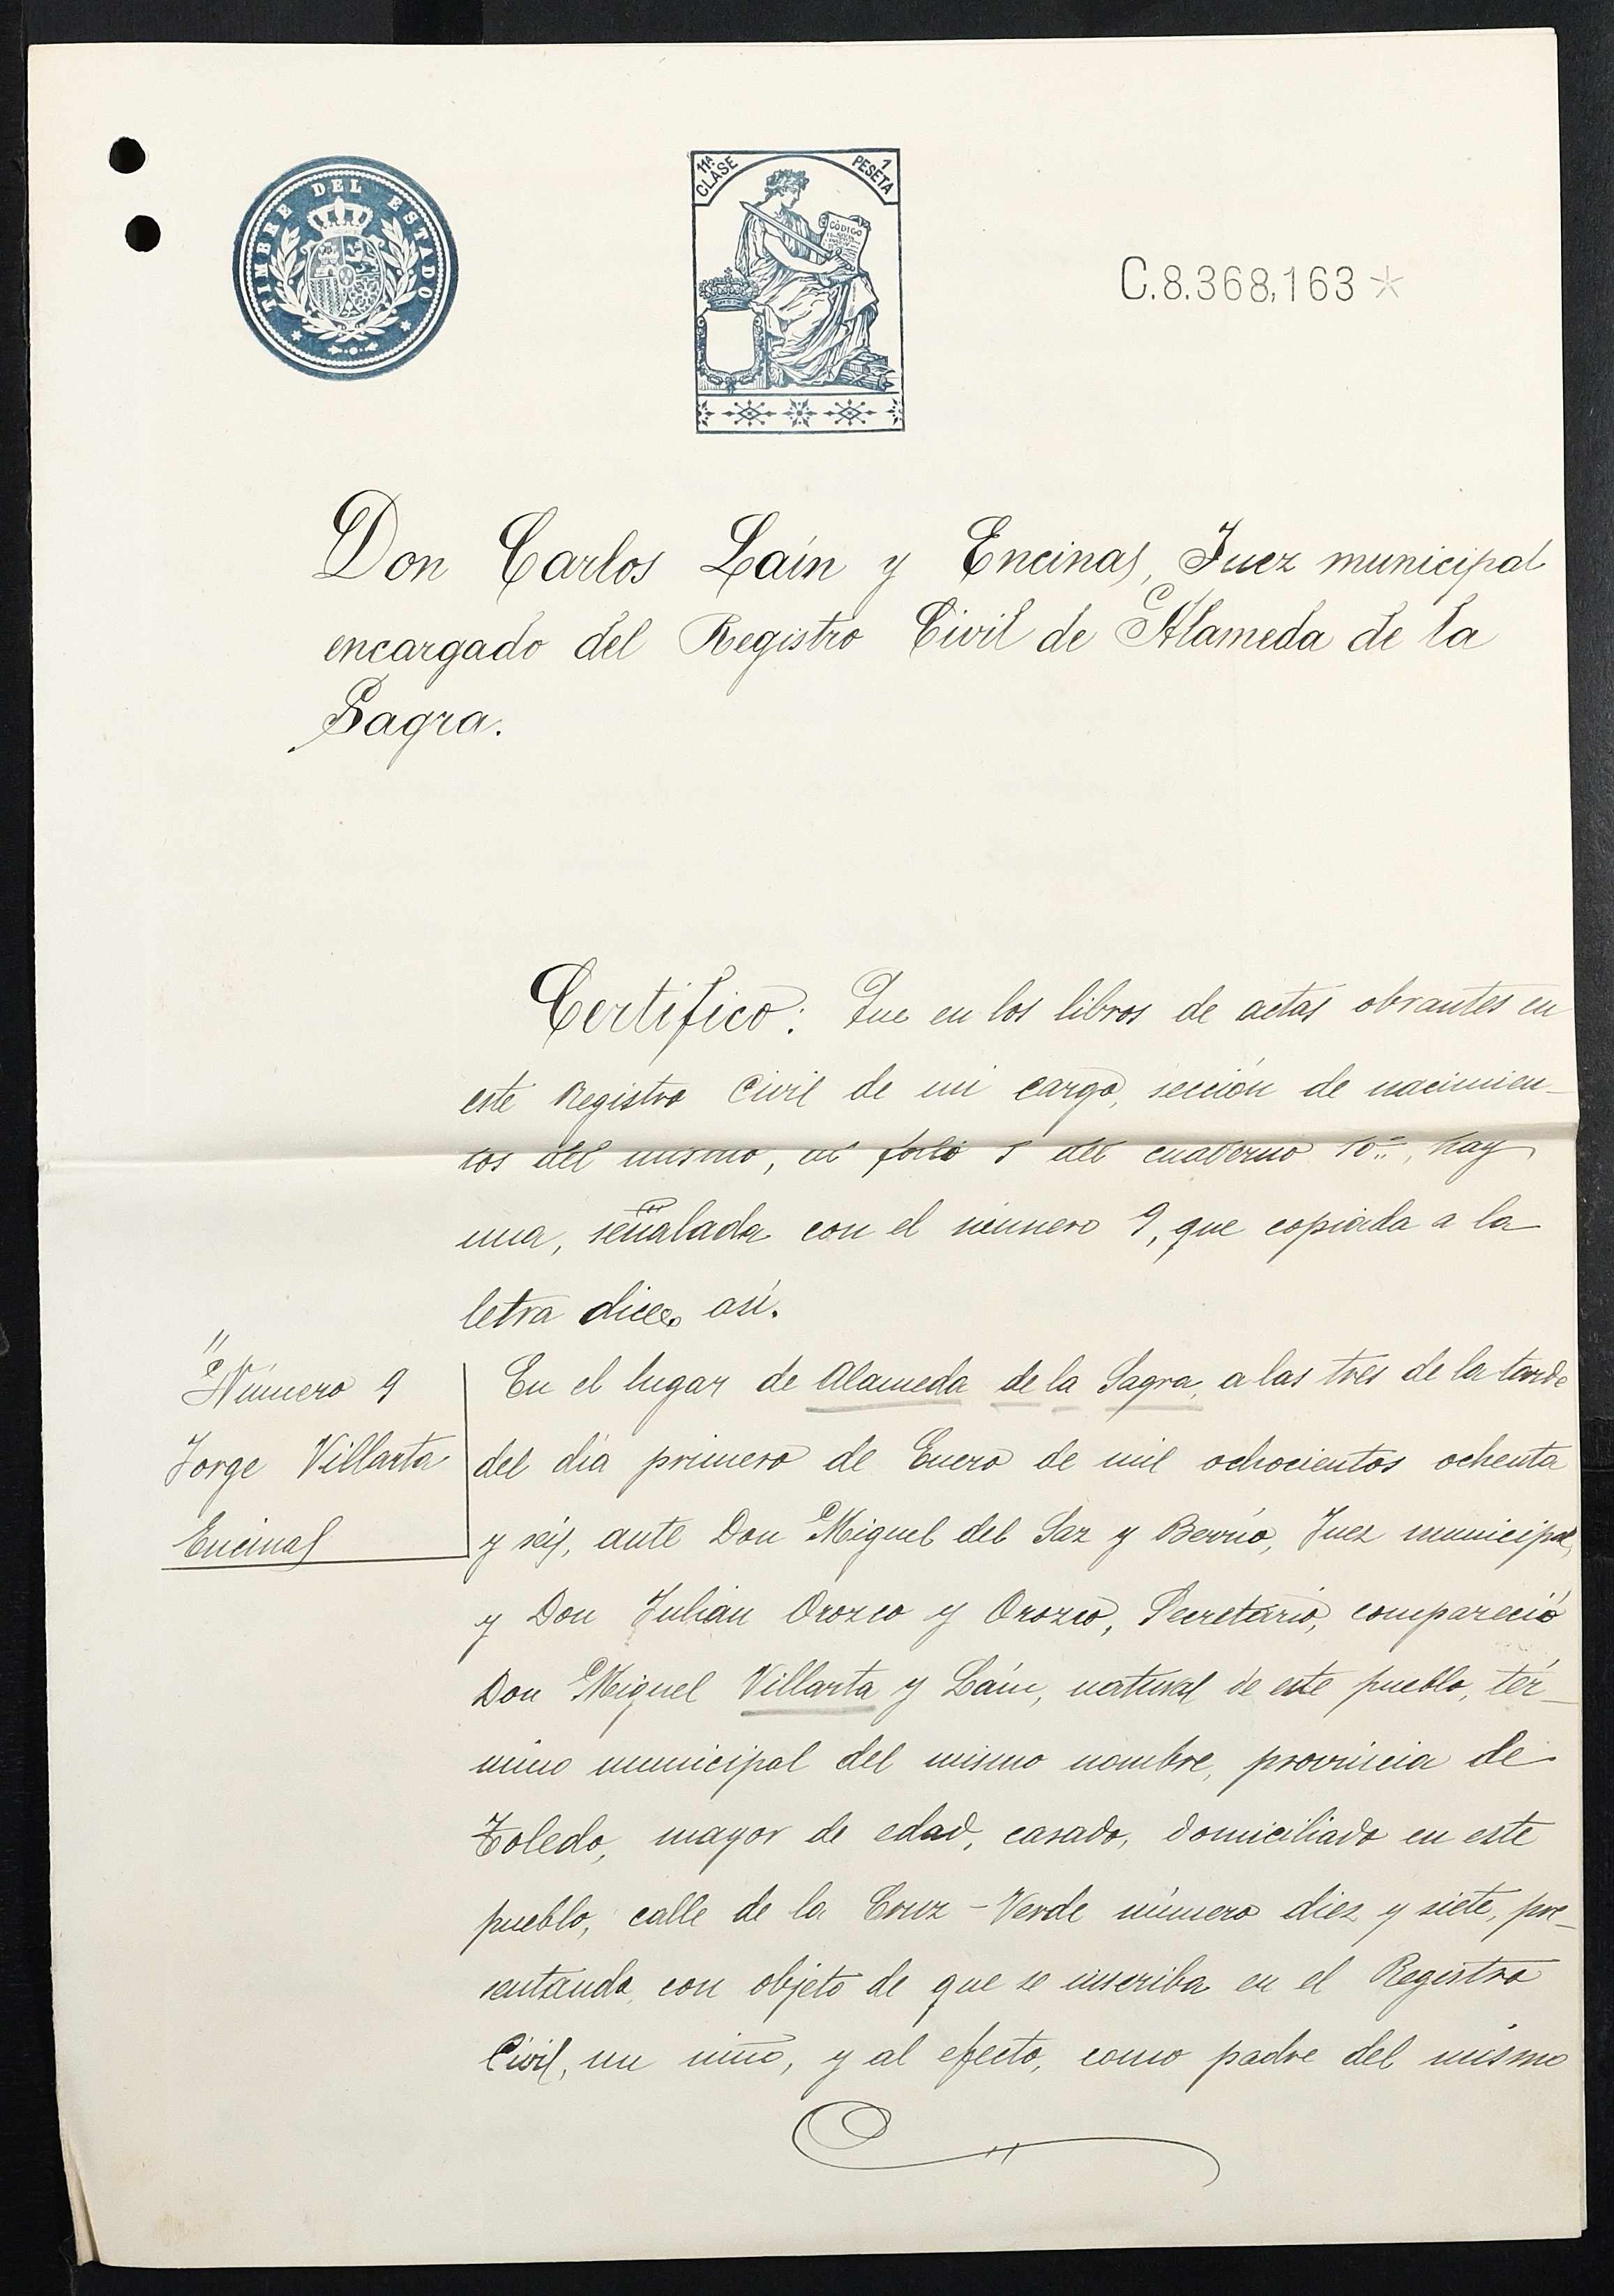 TIMBRE DEL ESTADO
11ª CLASE
1 PESETA
CÓDIGO
C.8.368,163*
Don Carlos Laín y Encinas, Juez municipal
encargado del Registro Civil de Alameda de la
Sagra.
Certifico: Que en los libros de actas obrantes en
este Registro Civil de mi cargo, sección de nacimien-
tos del mismo, al folio 5 del cuaderno 10º, hay
una, señalada con el número 9, que copiada a la
letra dice así.
"Número 9
Jorge Villarta
Encinas
En el lugar de Alameda de la Sagra, a las tres de la tarde
del día primero de Enero de mil ochocientos ochenta
y seis, ante Don Miguel del Saz y Berrio, Juez municipal,
y Don Julián Orozco y Orozco, Secretario, compareció
Don Miguel Villarta y Laín, natural de este pueblo, tér-
mino municipal del mismo nombre, provincia de
Toledo, mayor de edad, casado, domiciliado en este
pueblo, calle de la Cruz-Verde número diez y siete, pre-
sentando, con objeto de que se inscriba en el Registro
Civil, un niño, y al efecto, como padre del mismo